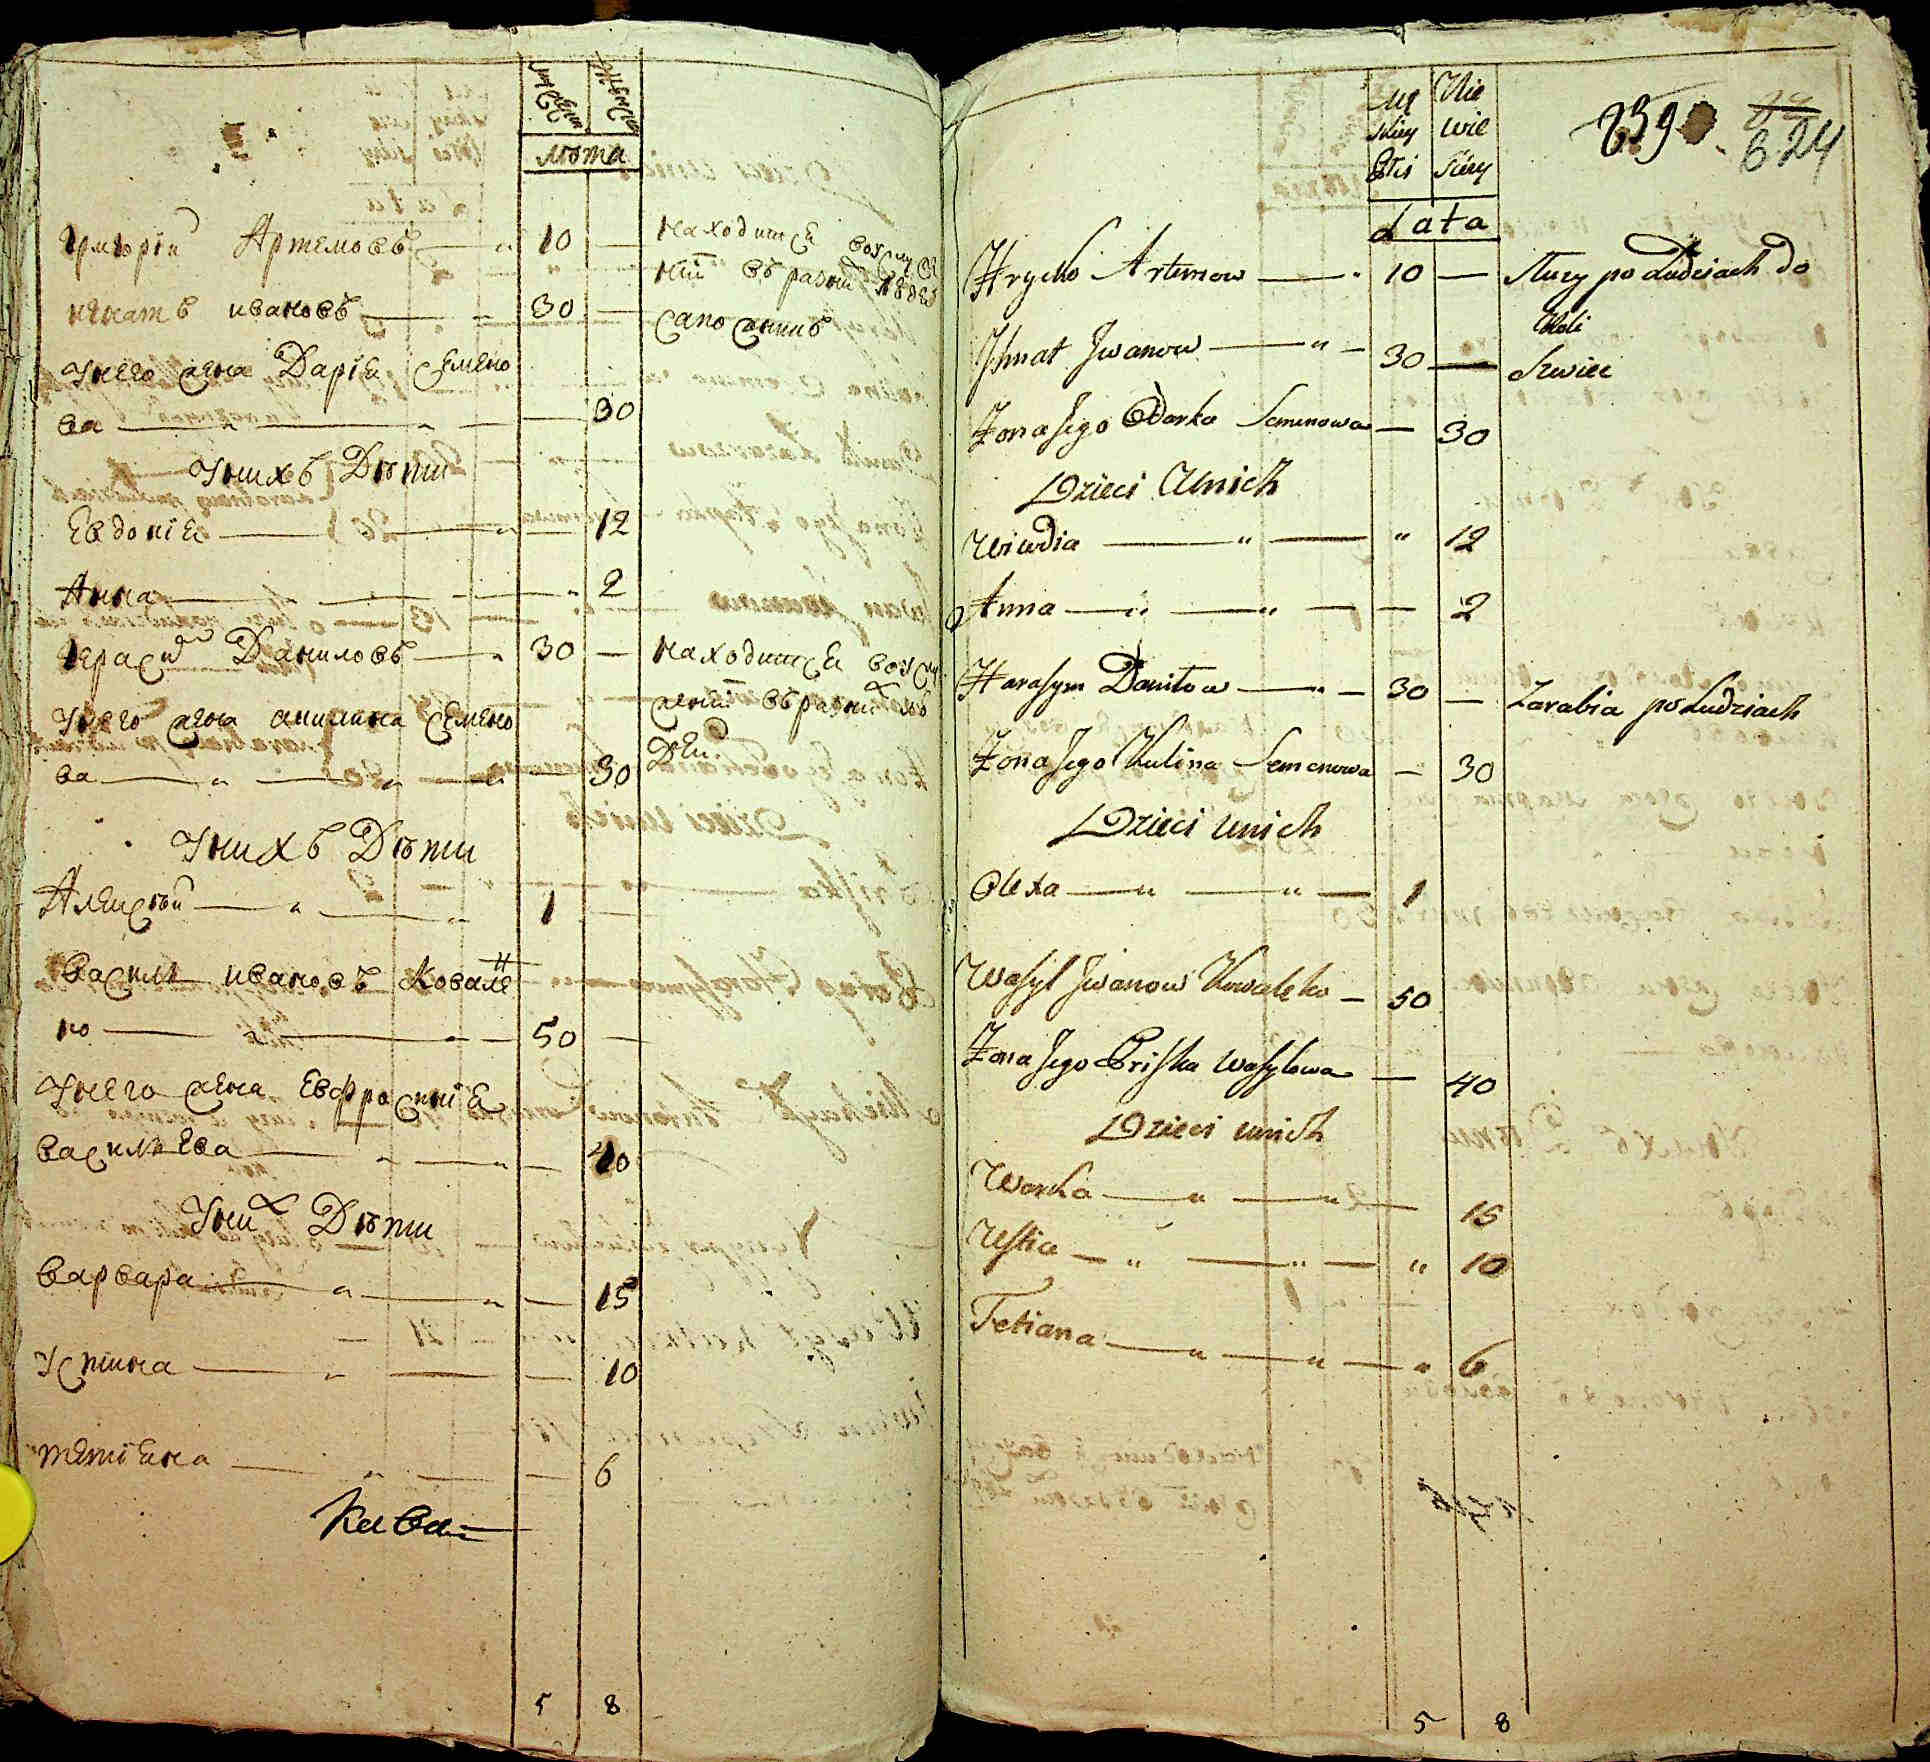 мужеска женска
лѣта
Григорій Артемовъ — 10 — находится воуслуже
ніи въ разны людеи
игнатъ ивановъ — 30 — сапожникъ
Унего жена Даріѧ Семено
ва — 30
Унихъ Дѣти
Евдокіѧ — 12
Анна — 2
Герасим Даниловъ — 30 — находится воуслу
женіи въ разных лю
деи
Унего жена акилина Семено
ва — 30
Унихъ Дѣти
Алеѯѣй — 1
Василь ивановъ Ковале
нко — 50 —
Унего жена Евфросиніѧ
васильева — 40
Уних Дѣти
варвара — 15
Устина — 10
тетіѧна — 6
5 8
Mę Nie
skiey wie
Płci sciey
Lata
239 824
Hrycko Artemow — 10 — Służy po Ludziach do
Roli
Jhnat Jwanow — 30 — Szwiec
Żona Jego Odarka Semenowa — 30
Dzieci Unich
Wiwdia — 12
Anna — 2
Harasym Daniłow — 30 — Zarabia po Ludziach
Żona Jego Kulina Semenowa — 30
Dzieci unich
Olexa — 1
Wasyl Jwanow Kowalęko — 50
Żona Jego Priska Wasylowa — 40
Dzieci unich
Warka — 15
Ustia — 10
Tetiana — 6
5 8